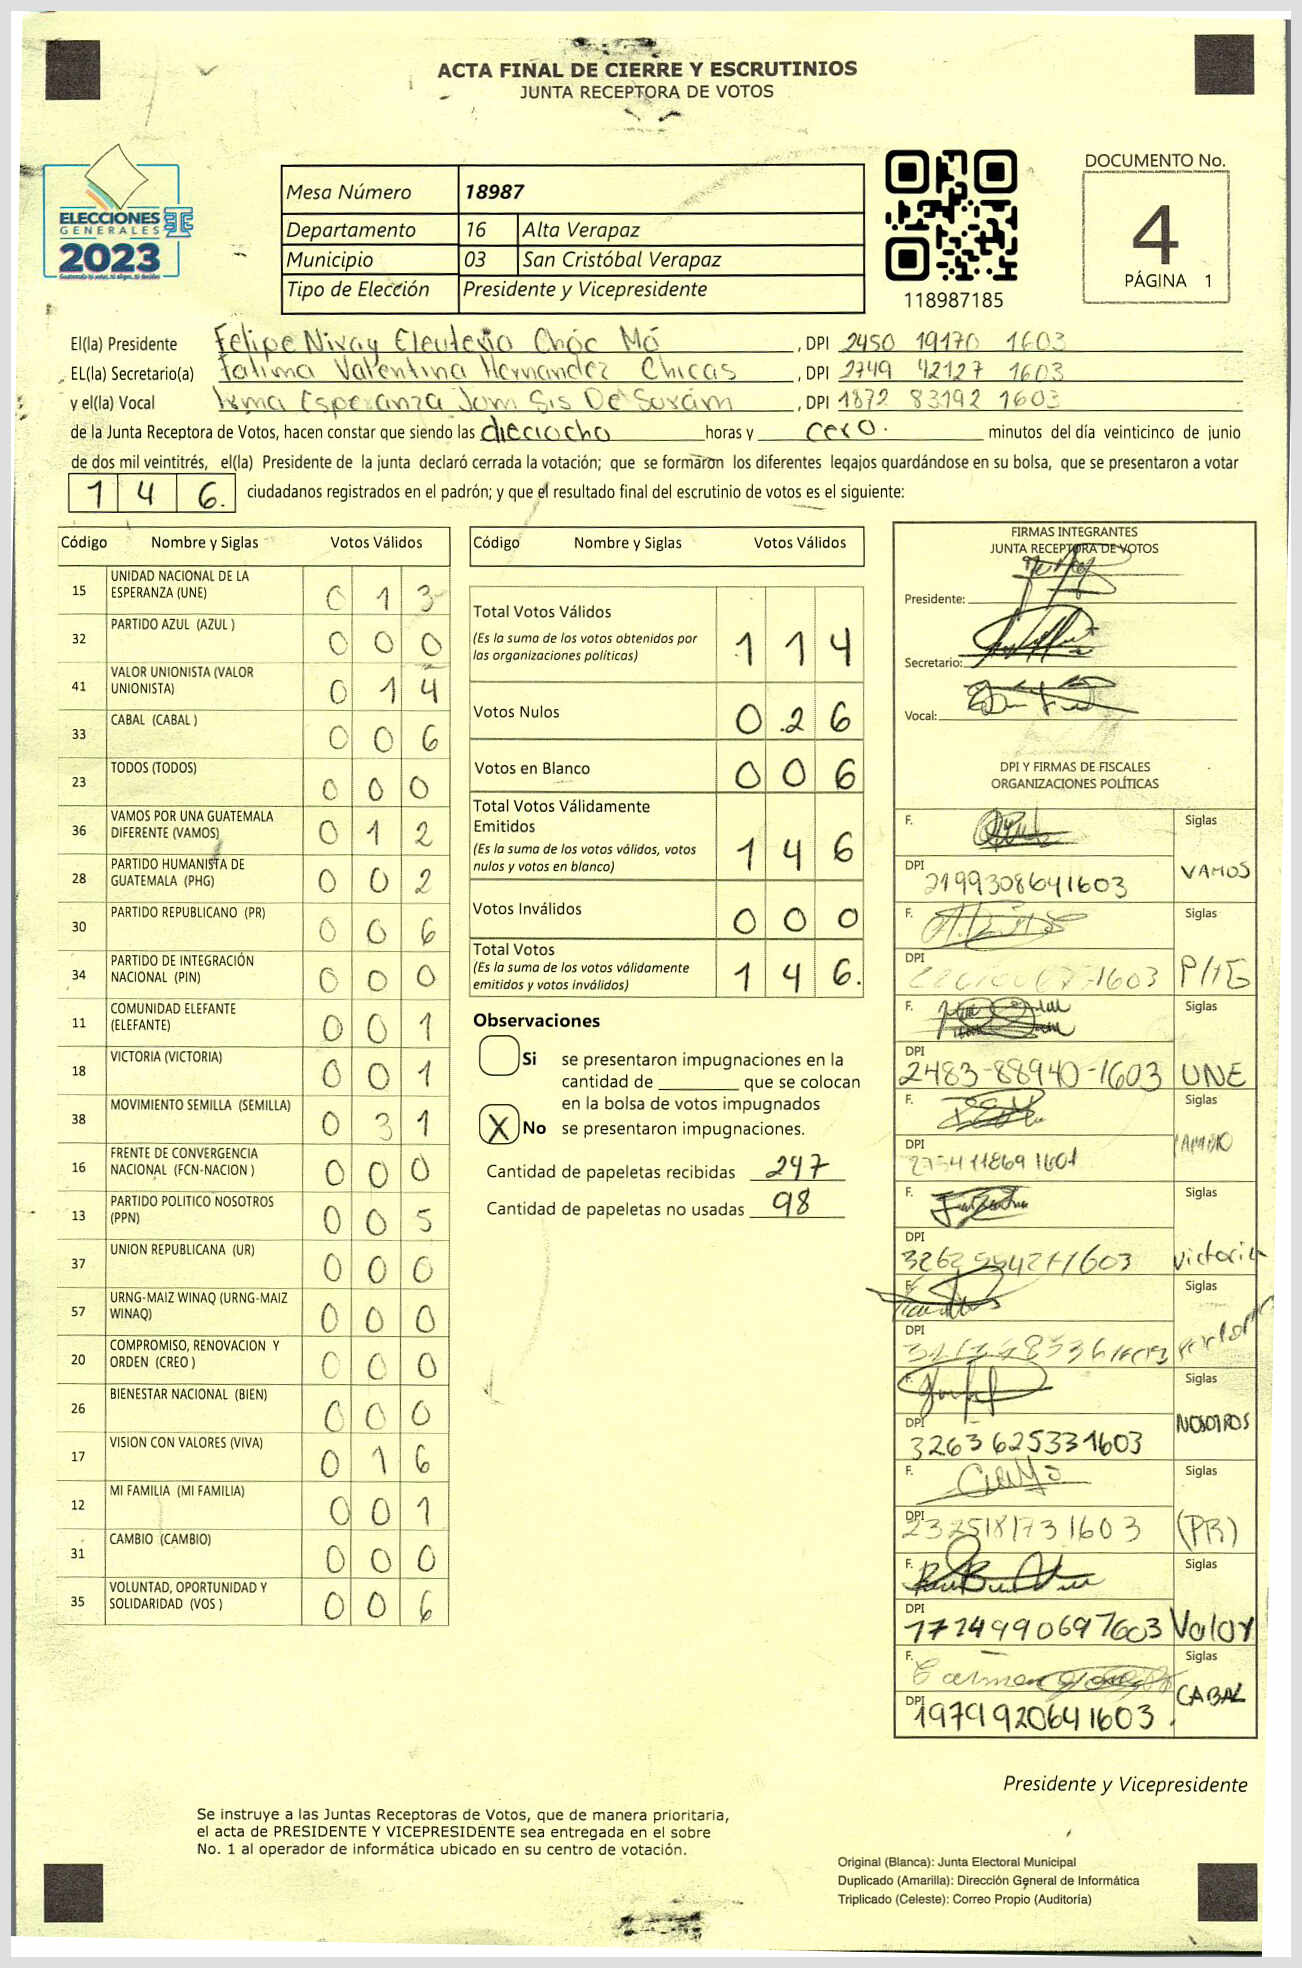 ACTA FINAL DE CIERRE Y ESCRUTINIOS
JUNTA RECEPTORA DE VOTOS
ELECCIONES
GENERALES
2023
Mesa Número 18987
Departamento 16 Alta Verapaz
Municipio 03 San Cristóbal Verapaz
Tipo de Elección Presidente y Vicepresidente
118987185
DOCUMENTO No.
4
PÁGINA 1
El(la) Presidente Felipe Nivay Eleuterio Chóc Mó, DPI 2450 19170 1603
EL(la) Secretario(a) Fatima Valentina Hernandez Chicas, DPI 2749 42127 1603
y el(la) Vocal Irma Esperanza Jom Sis De Suram, DPI 1872 83192 1603
de la Junta Receptora de Votos, hacen constar que siendo las dieciocho horas y cero. minutos del día veinticinco de junio
de dos mil veintitrés, el(la) Presidente de la junta declaró cerrada la votación; que se formaron los diferentes legajos guardándose en su bolsa, que se presentaron a votar
1 4 6. ciudadanos registrados en el padrón; y que el resultado final del escrutinio de votos es el siguiente:
Código Nombre y Siglas Votos Válidos
15 UNIDAD NACIONAL DE LA ESPERANZA (UNE) 0 1 3
32 PARTIDO AZUL (AZUL ) 0 0 0
41 VALOR UNIONISTA (VALOR UNIONISTA) 0 1 4
33 CABAL (CABAL ) 0 0 6
23 TODOS (TODOS) 0 0 0
36 VAMOS POR UNA GUATEMALA DIFERENTE (VAMOS) 0 1 2
28 PARTIDO HUMANISTA DE GUATEMALA (PHG) 0 0 2
30 PARTIDO REPUBLICANO (PR) 0 0 6
34 PARTIDO DE INTEGRACIÓN NACIONAL (PIN) 0 0 0
11 COMUNIDAD ELEFANTE (ELEFANTE) 0 0 1
18 VICTORIA (VICTORIA) 0 0 1
38 MOVIMIENTO SEMILLA (SEMILLA) 0 3 1
16 FRENTE DE CONVERGENCIA NACIONAL (FCN-NACION ) 0 0 0
13 PARTIDO POLITICO NOSOTROS (PPN) 0 0 5
37 UNION REPUBLICANA (UR) 0 0 0
57 URNG-MAIZ WINAQ (URNG-MAIZ WINAQ) 0 0 0
20 COMPROMISO, RENOVACION Y ORDEN (CREO ) 0 0 0
26 BIENESTAR NACIONAL (BIEN) 0 0 0
17 VISION CON VALORES (VIVA) 0 1 6
12 MI FAMILIA (MI FAMILIA) 0 0 1
31 CAMBIO (CAMBIO) 0 0 0
35 VOLUNTAD, OPORTUNIDAD Y SOLIDARIDAD (VOS ) 0 0 6
Código Nombre y Siglas Votos Válidos
Total Votos Válidos 1 1 4
(Es la suma de los votos obtenidos por
las organizaciones políticas)
Votos Nulos 0 2 6
Votos en Blanco 0 0 6
Total Votos Válidamente
Emitidos 1 4 6
(Es la suma de los votos válidos, votos
nulos y votos en blanco)
Votos Inválidos 0 0 0
Total Votos 1 4 6.
(Es la suma de los votos válidamente
emitidos y votos inválidos)
Observaciones
Si se presentaron impugnaciones en la
cantidad de ________ que se colocan
en la bolsa de votos impugnados
X No se presentaron impugnaciones.
Cantidad de papeletas recibidas 247
Cantidad de papeletas no usadas 98
FIRMAS INTEGRANTES
JUNTA RECEPTORA DE VOTOS
Presidente:
Secretario:
Vocal:
DPI Y FIRMAS DE FISCALES
ORGANIZACIONES POLÍTICAS
F. Siglas
DPI 2199308641603 VAMOS
F. Siglas
DPI 1603 PHG
F. Siglas
DPI 2483-88940-1603 UNE
F. Siglas
DPI
F. Siglas
DPI 1603 victoria
F. Siglas
DPI
F. Siglas
DPI 3263625331603 NOSOTROS
F. Siglas
DPI 2325181731603 (PR)
F. Siglas
DPI 1774990697603 Valor
F. Carmen Siglas
DPI 1979920641603. CABAL
Presidente y Vicepresidente
Se instruye a las Juntas Receptoras de Votos, que de manera prioritaria,
el acta de PRESIDENTE Y VICEPRESIDENTE sea entregada en el sobre
No. 1 al operador de informática ubicado en su centro de votación.
Original (Blanca): Junta Electoral Municipal
Duplicado (Amarilla): Dirección General de Informática
Triplicado (Celeste): Correo Propio (Auditoría)